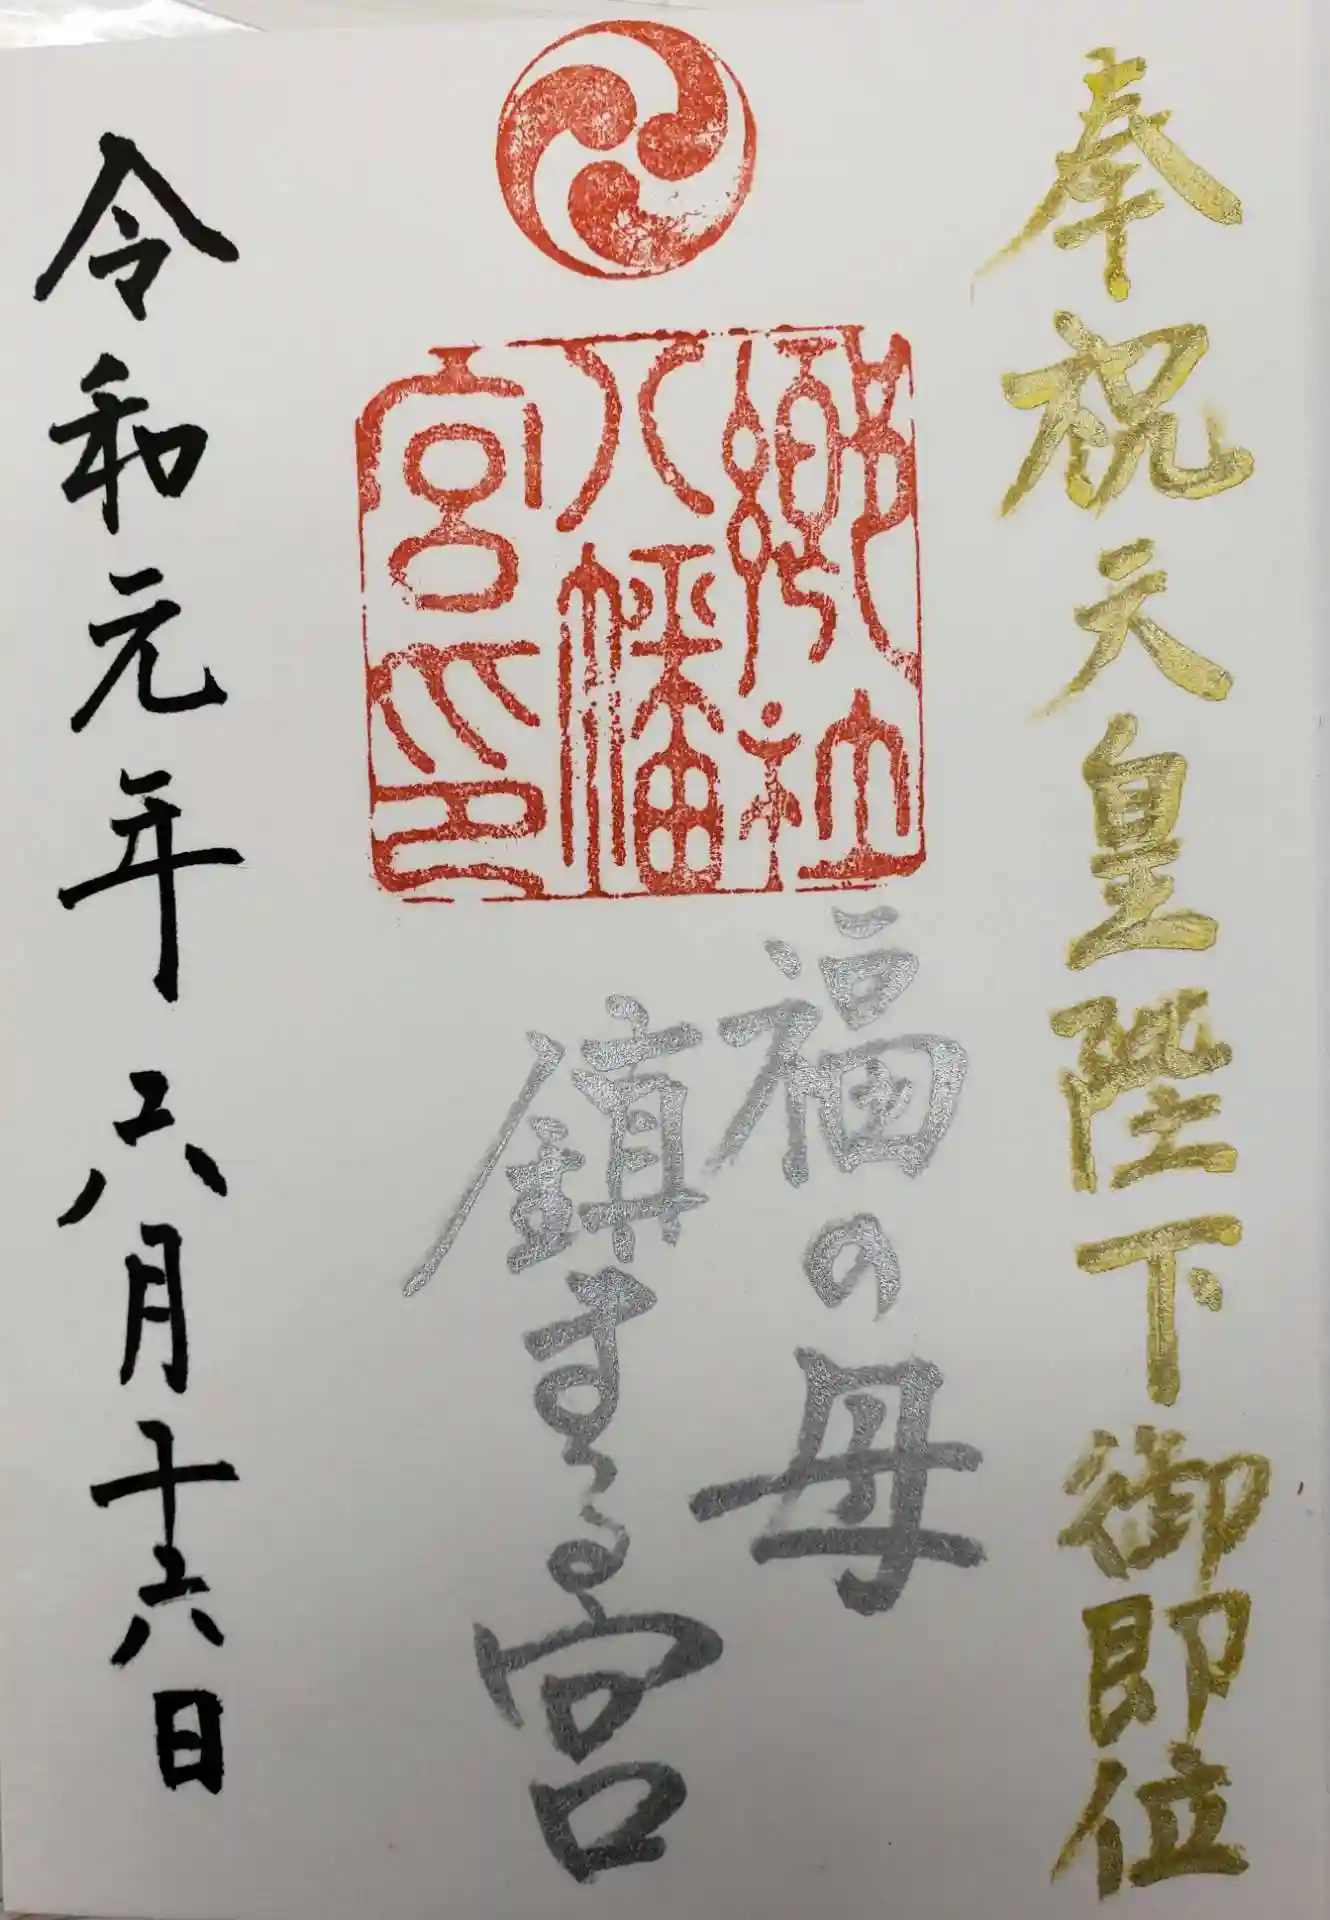 奉祝天皇陛下御即位
郷社
八幡
宮印
福の母
鎮まる宮
令和元年六月十六日